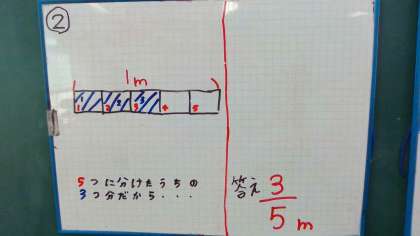 ②
1m
1 2 3
1 2 3 4 5
5つに分けたうちの
3つ分だから・・・
答え 3/5 m